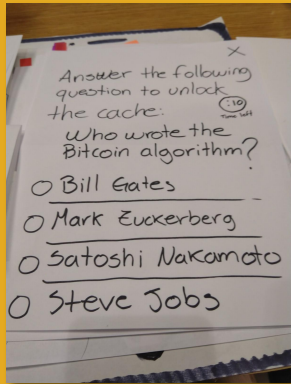 X
Answer the following
question to unlock
the cache:
:10
Time left
Who wrote the
Bitcoin algorithm?
Bill Gates
Mark Zuckerberg
Satoshi Nakamoto
Steve Jobs